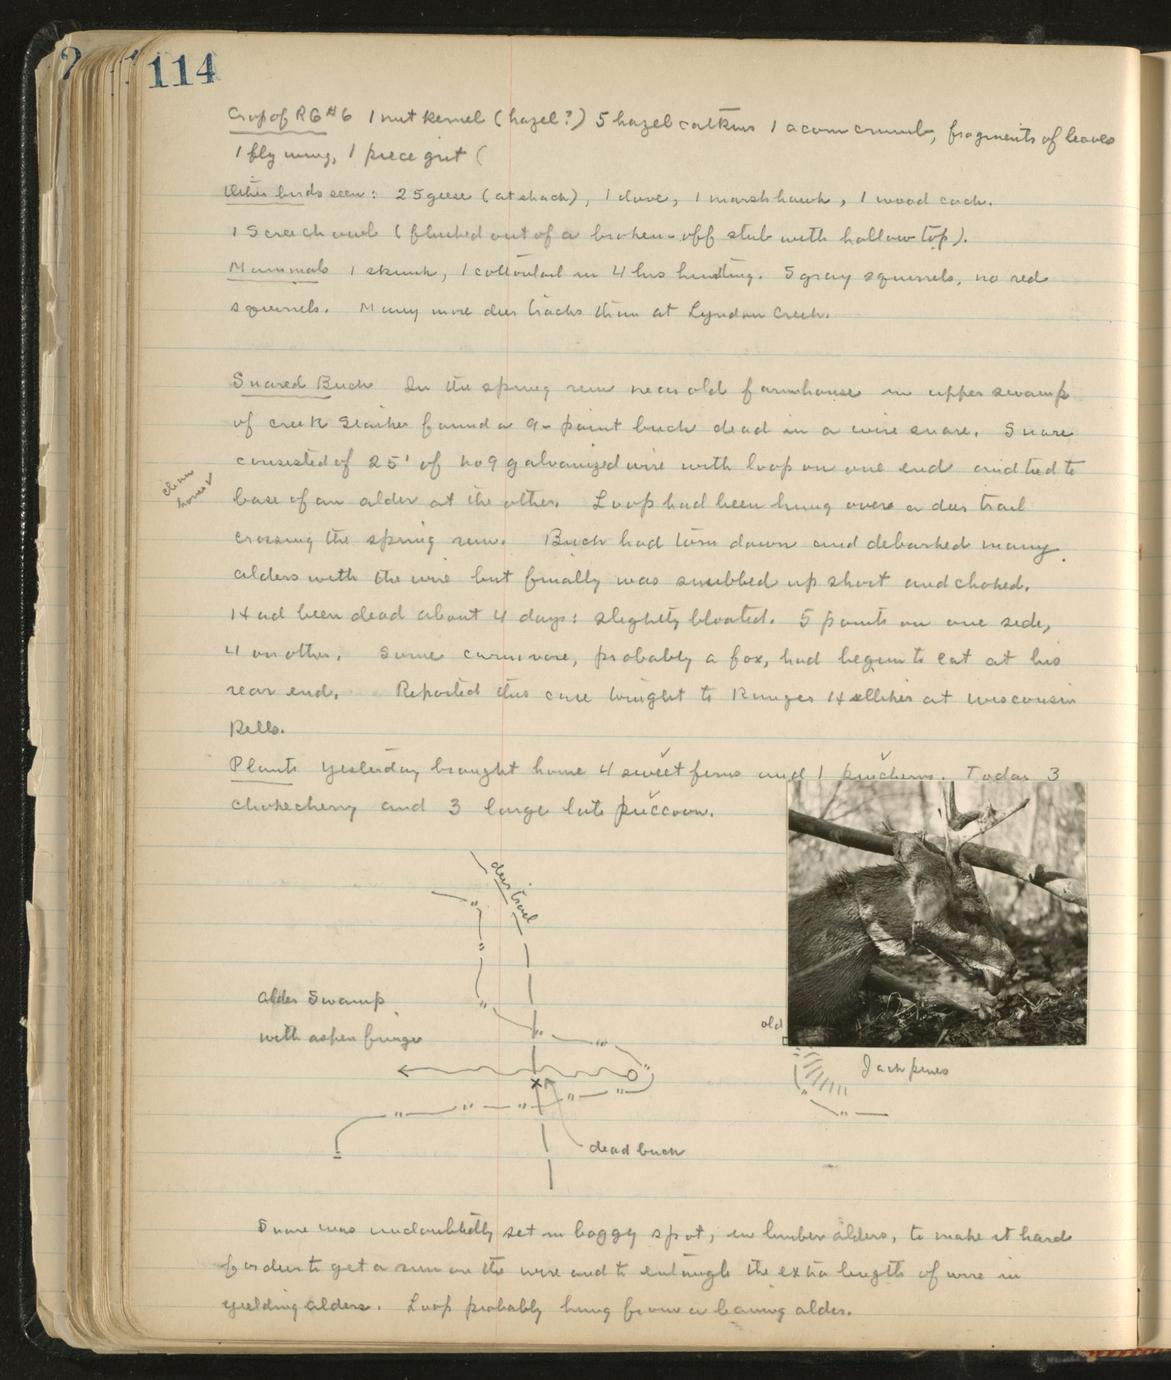 114
Crop of RG#6 1 nut kernel (hazel?) 5 hazel catkins 1 acorn crumb, fragments of leaves
1 fly wing, 1 piece grit (
Other birds seen: 25 geese (at shack), 1 dove, 1 marsh hawk, 1 wood cock.
1 Screech owl (flushed out of a broken-off stub with hollow top).
Mammals 1 skunk, 1 cottontail in 4 hrs hunting. 5 gray squirrels, no red
squirrels. Many more deer tracks than at Lyndon Creek.
Snared Buck In the spring run near old farmhouse in upper swamp
of creek Starker found a 9-point buck dead in a wire snare. Snare
consisted of 25' of no 9 galvanized wire with loop on one end and tied to
base of an alder at the other. Loop had been hung over a deer trail
crossing the spring run. Buck had torn down and debarked many
alders with the wire but finally was snubbed up short and choked.
Had been dead about 4 days: slightly bloated. 5 points on one side,
4 on other. Some carnivore, probably a fox, had begun to eat at his
rear end. Reported this case tonight to Ranger at Wisconsin
Dells.
Plants Yesterday brought home 4 sweet ferns and 1 . Today 3
chokecherry and 3 large late puccoon.
deer trail
Alder Swamp
with aspen fringe
old
Jack pines
dead buck
Snare was undoubtedly set in boggy spot, in limber alders, to make it hard
for deer to get a run on the wire and to entangle the extra length of wire in
yielding alders. Loop probably hung from a leaning alder.